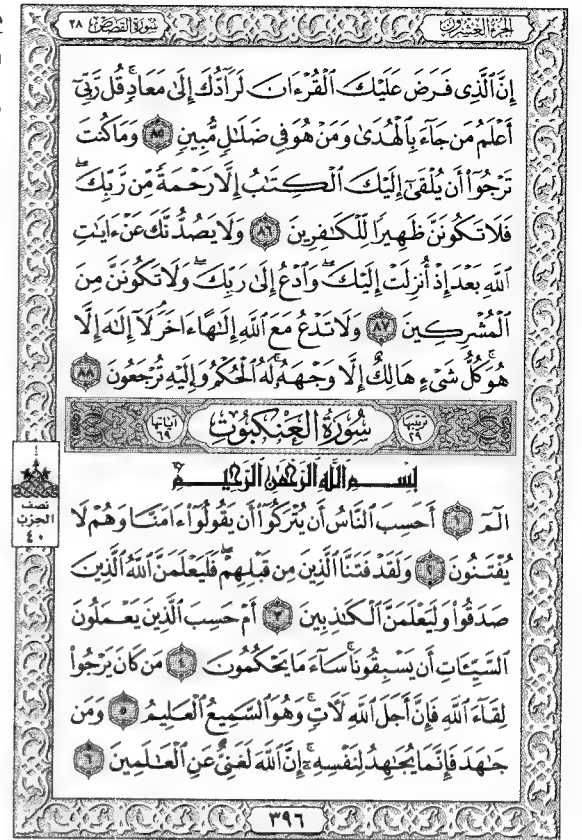 الجزء العشرون
سورة القصص ٢٨
إِنَّ ٱلَّذِى فَرَضَ عَلَيْكَ ٱلْقُرْءَانَ لَرَآدُّكَ إِلَىٰ مَعَادٍ ۚ قُل رَّبِّىٓ
أَعْلَمُ مَن جَآءَ بِٱلْهُدَىٰ وَمَنْ هُوَ فِى ضَلَٰلٍ مُّبِينٍ ٨٥ وَمَا كُنتَ
تَرْجُوٓا۟ أَن يُلْقَىٰٓ إِلَيْكَ ٱلْكِتَٰبُ إِلَّا رَحْمَةً مِّن رَّبِّكَ ۖ
فَلَا تَكُونَنَّ ظَهِيرًا لِّلْكَٰفِرِينَ ٨٦ وَلَا يَصُدُّنَّكَ عَنْ ءَايَٰتِ
ٱللَّهِ بَعْدَ إِذْ أُنزِلَتْ إِلَيْكَ ۖ وَٱدْعُ إِلَىٰ رَبِّكَ ۖ وَلَا تَكُونَنَّ مِنَ
ٱلْمُشْرِكِينَ ٨٧ وَلَا تَدْعُ مَعَ ٱللَّهِ إِلَٰهًا ءَاخَرَ ۘ لَآ إِلَٰهَ إِلَّا
هُوَ ۚ كُلُّ شَىْءٍ هَالِكٌ إِلَّا وَجْهَهُۥ ۚ لَهُ ٱلْحُكْمُ وَإِلَيْهِ تُرْجَعُونَ ٨٨
ترتيبها ٢٩ سورة العنكبوت آياتها ٦٩
بِسْمِ ٱللَّهِ ٱلرَّحْمَٰنِ ٱلرَّحِيمِ
الٓمٓ ١ أَحَسِبَ ٱلنَّاسُ أَن يُتْرَكُوٓا۟ أَن يَقُولُوٓا۟ ءَامَنَّا وَهُمْ لَا
يُفْتَنُونَ ٢ وَلَقَدْ فَتَنَّا ٱلَّذِينَ مِن قَبْلِهِمْ ۖ فَلَيَعْلَمَنَّ ٱللَّهُ ٱلَّذِينَ
صَدَقُوا۟ وَلَيَعْلَمَنَّ ٱلْكَٰذِبِينَ ٣ أَمْ حَسِبَ ٱلَّذِينَ يَعْمَلُونَ
ٱلسَّيِّـَٔاتِ أَن يَسْبِقُونَا ۚ سَآءَ مَا يَحْكُمُونَ ٤ مَن كَانَ يَرْجُوا۟
لِقَآءَ ٱللَّهِ فَإِنَّ أَجَلَ ٱللَّهِ لَءَاتٍ ۚ وَهُوَ ٱلسَّمِيعُ ٱلْعَلِيمُ ٥ وَمَن
جَٰهَدَ فَإِنَّمَا يُجَٰهِدُ لِنَفْسِهِۦٓ ۚ إِنَّ ٱللَّهَ لَغَنِىٌّ عَنِ ٱلْعَٰلَمِينَ ٦
نصف
الحزب
٤٠
٣٩٦